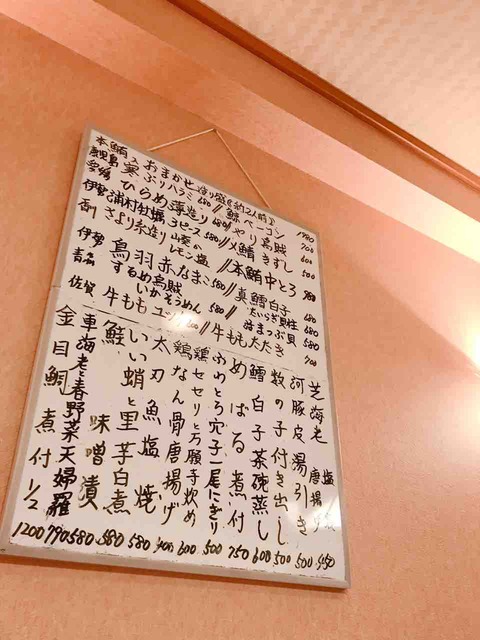 本鮪入 おまかせ造り盛(約2人前) 1780
鹿児島 寒ぶりハラミ 680 // 鯨ベーコン 700
愛媛 ひらめ薄造り 680 // やり烏賊 600
伊勢 浦村牡蠣 3ピース 580 // 〆鯖きずし 500
香川 さより糸造り 山葵かレモン塩 // 本鮪中とろ 980
伊勢 鳥羽赤なまこ 580 // 真鱈白子 680
青森 するめ烏賊いかそうめん 580 // たいらぎ貝柱 680
活まつぶ貝 580
佐賀 牛ももユッケ // 牛ももたたき 700
芝海老唐揚げ 塩 450
河豚皮湯引き 500
数の子付き出し 500
鱈白子茶碗蒸し 600
めばる煮付 750
ふわとろ穴子一尾にぎり 500
鶏セセリと万願寺炒め 600
鶏なん骨唐揚げ 400
太刀魚塩焼 580
いい蛸と里芋白煮 580
鮭味噌漬 580
車海老と春野菜天婦羅 790
金目鯛煮付 1/2 1200